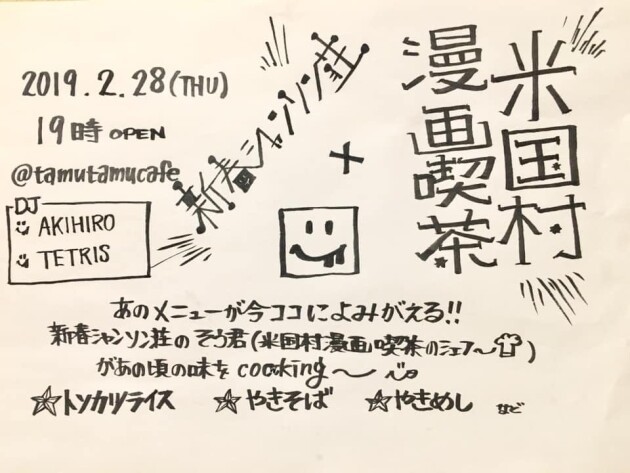 米国村
漫画喫茶
×
新春シャンソン荘
2019.2.28(THU)
19時 OPEN
@tamutamucafe
DJ
AKIHIRO
TETRIS
あのメニューが今ココによみがえる!!
新春シャンソン荘のそう君(米国村漫画喫茶のシェフ〜)
があの頃の味をcooking〜
☆トンカツライス ☆やきそば ☆やきめし など